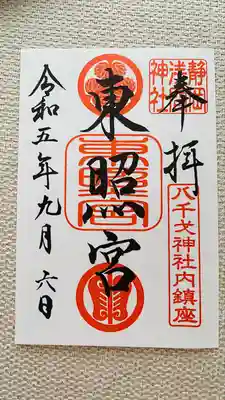 奉拝
静岡浅間神社
八千戈神社内鎮座
東照宮
東照宮
令和五年九月六日